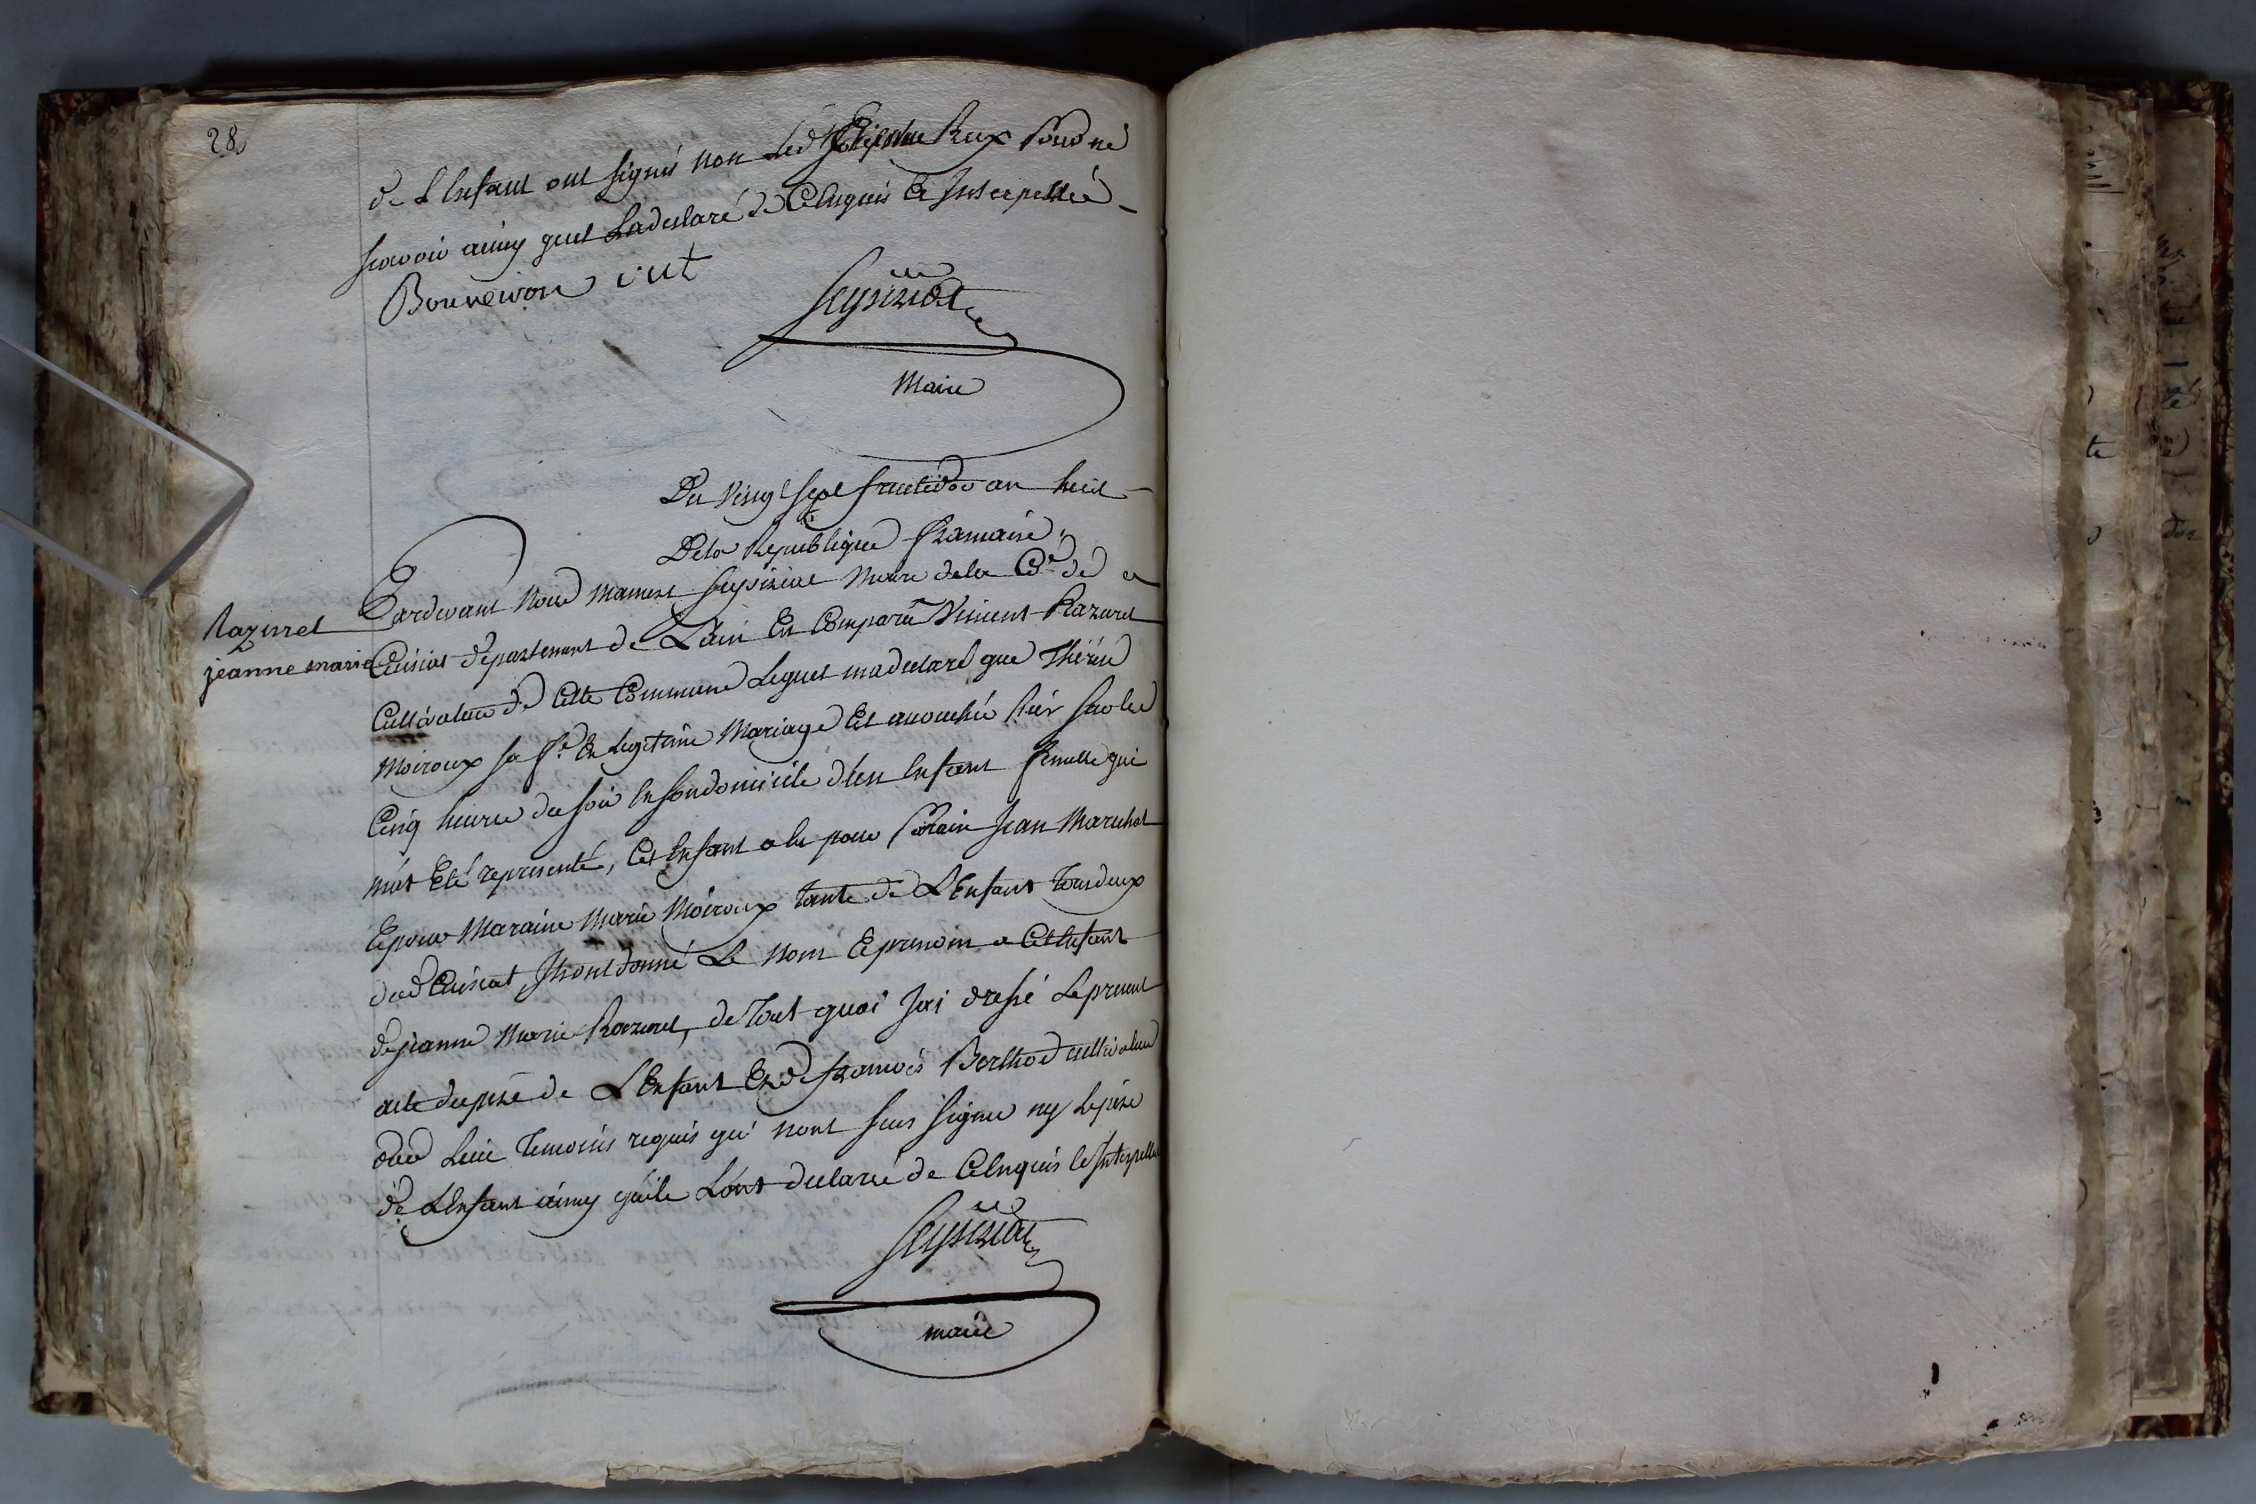 28
de L'Enfant ont signés non led Rux pour ne
scavoir ainsy quil La declaré de Ce Enquis Et Interpellé
Bouveiron
Seysiriat
Maire
Du Vingt sept fructidor an huit
Dela Republique francaise
Razurel
jeanne marie
Pardevant Nous Mamert Seysiriat Maire dela Cne de
Cuisiat departement de Lain Est Comparu Vincent Razurel
Cultivateur de Cette Commune Lequel ma declaré que Thérese
Moiroux sa fe En Legitime Mariage Est accouchée hier sur les
Cinq heures du soir En son domicile d'un Enfant femelle qui
m'at Eté representé, Cet Enfant a Eu pour Parain Jean Marechal
Et pour Maraine Marie Moiroux tante de L'Enfant tous deux
dud Cuisiat Ils ont donné Le nom Et prenom a Cet Enfant
de jeanne Marie Razurel, de Tout quoi Jai dressé Le present
acte du pere de L'Enfant Et de francois Berthod cultivateur
dud Lieu Temoins requis qui nont sus signer ny Le pere
de L'Enfant ainsy quils L'ont declaré de Ce Enquis Et Interpellé
Seysiriat
maire